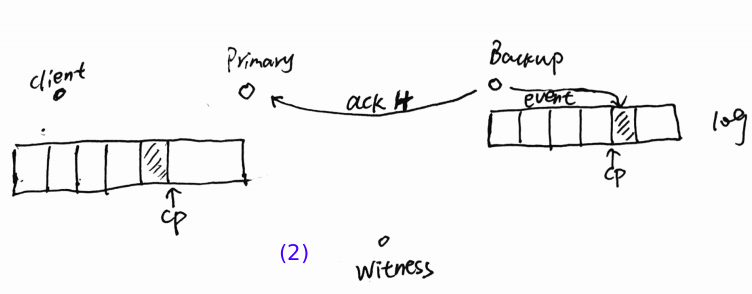 client
Primary
Backup
ack #
event
log
cp
cp
(2)
Witness